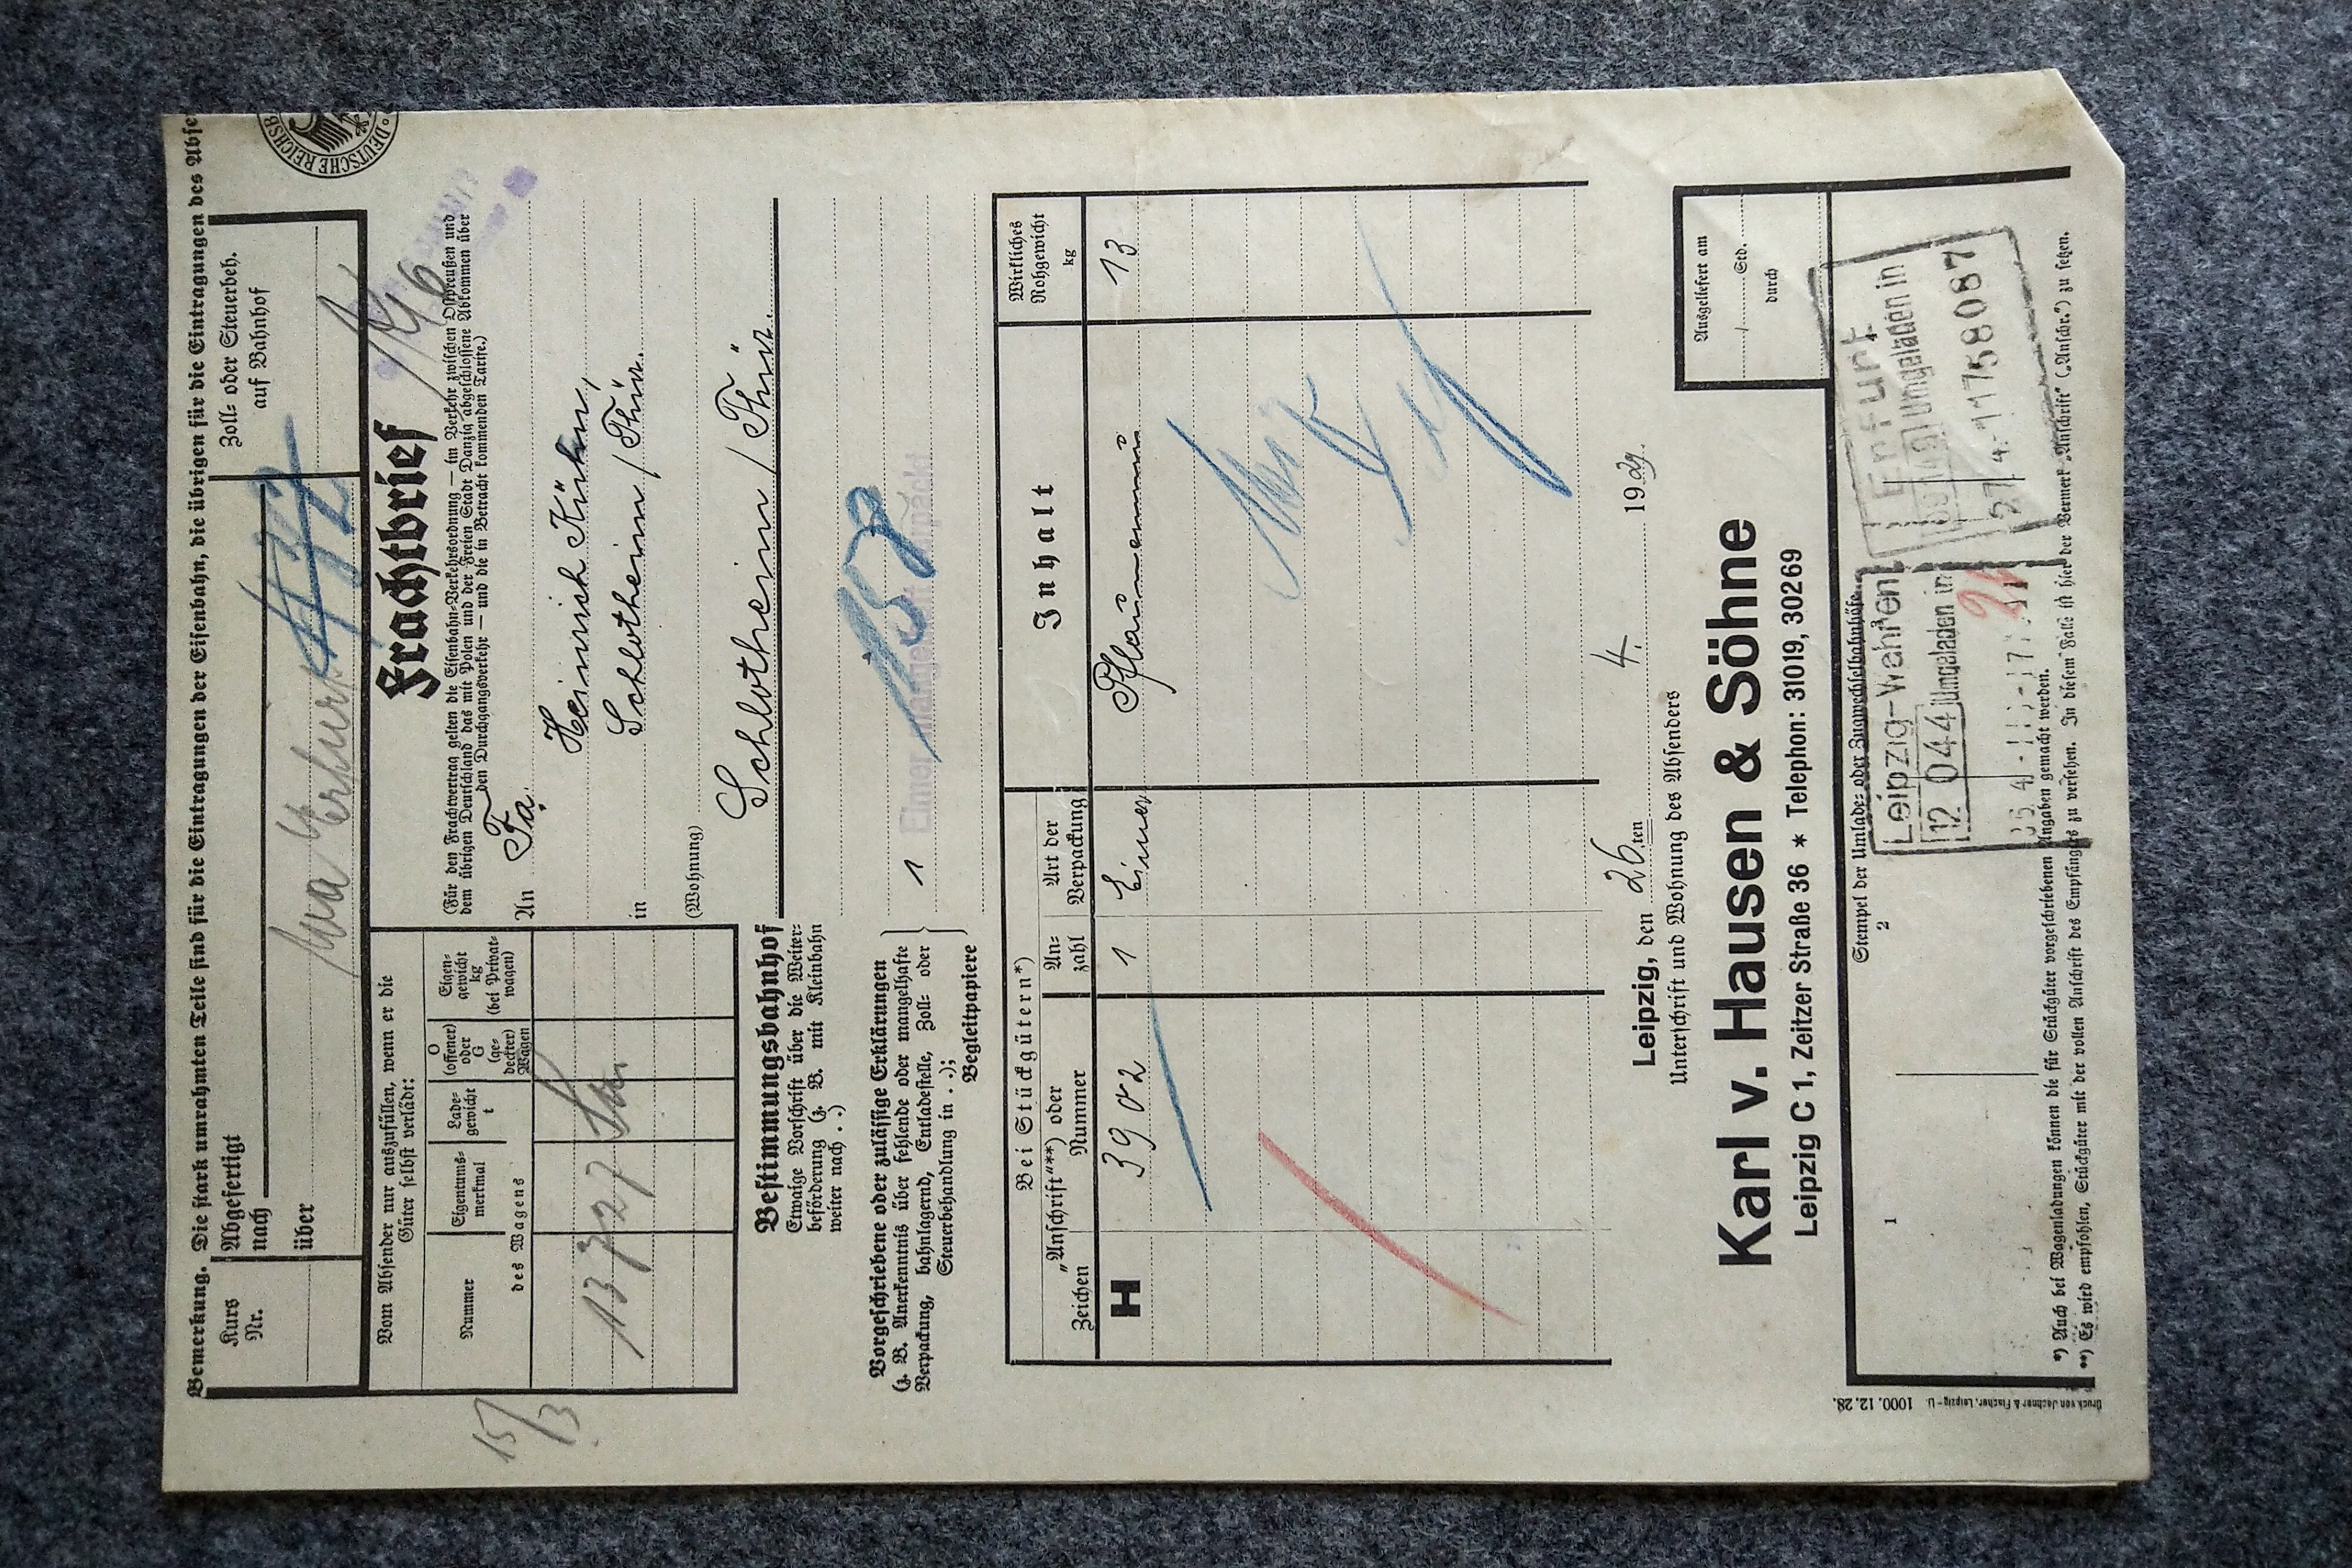 Bemerkung. Die stark umrahmten Teile sind für die Eintragungen der Eisenbahn, die übrigen für die Eintragungen des Abse
DEUTSCHE REICHSB
Kurs
Nr.
Abgefertigt
nach
über
Zoll- oder Steuerbeh.
auf Bahnhof
Frachtbrief
(Für den Frachtvertrag gelten die Eisenbahn-Verkehrsordnung — im Verkehr zwischen Ostpreußen und
dem übrigen Deutschland das mit Polen und der Freien Stadt Danzig abgeschlossene Abkommen über
den Durchgangsverkehr — und die in Betracht kommenden Tarife.)
15/3
Vom Absender nur auszufüllen, wenn er die
Güter selbst verlädt:
Nummer
Eigentums-
merkmal
Lade-
gewicht
t
O
(offener)
oder
G
(ge-
deckter)
Wagen
Eigen-
gewicht
kg
(bei Privat-
wagen)
des Wagens
13727
An Fa.
Heinrich Kühn,
in Schlotheim / Thür.
(Wohnung)
Bestimmungsbahnhof
Schlotheim / Thür.
Etwaige Vorschrift über die Weiter-
beförderung (z. B. mit Kleinbahn
weiter nach . .)
158
Vorgeschriebene oder zulässige Erklärungen
(z. B. Anerkenntnis über fehlende oder mangelhafte
Verpackung, bahnlagernd, Entladestelle, Zoll- oder
Steuerbehandlung in . .);
Begleitpapiere
1 Eimer mangelhaft verpackt
Bei Stückgütern*)
"Anschrift"**) oder
Zeichen
Nummer
An-
zahl
Art der
Verpackung
Inhalt
Wirkliches
Rohgewicht
kg
H 3902 1 Eimer Pflaumenmus 13
Leipzig, den 26ten 4. 1929.
Unterschrift und Wohnung des Absenders
Karl v. Hausen & Söhne
Leipzig C 1, Zeitzer Straße 36 * Telephon: 31019, 30269
Ausgeliefert am
/ Std.
durch
Stempel der Umlade- oder Zugwechselbahnhöfe
1
2
Leipzig-Wahren
12 044 Umgeladen in
Erfurt
Umgeladen in
27.4.-1758087
*) Auch bei Wagenladungen können die für Stückgüter vorgeschriebenen Angaben gemacht werden.
**) Es wird empfohlen, Stückgüter mit der vollen Anschrift des Empfängers zu versehen. In diesem Falle ist hier der Vermerk „Anschrift" („Anschr.") zu setzen.
Druck von Jachner & Fischer, Leipzig-U. 1000. 12. 28.